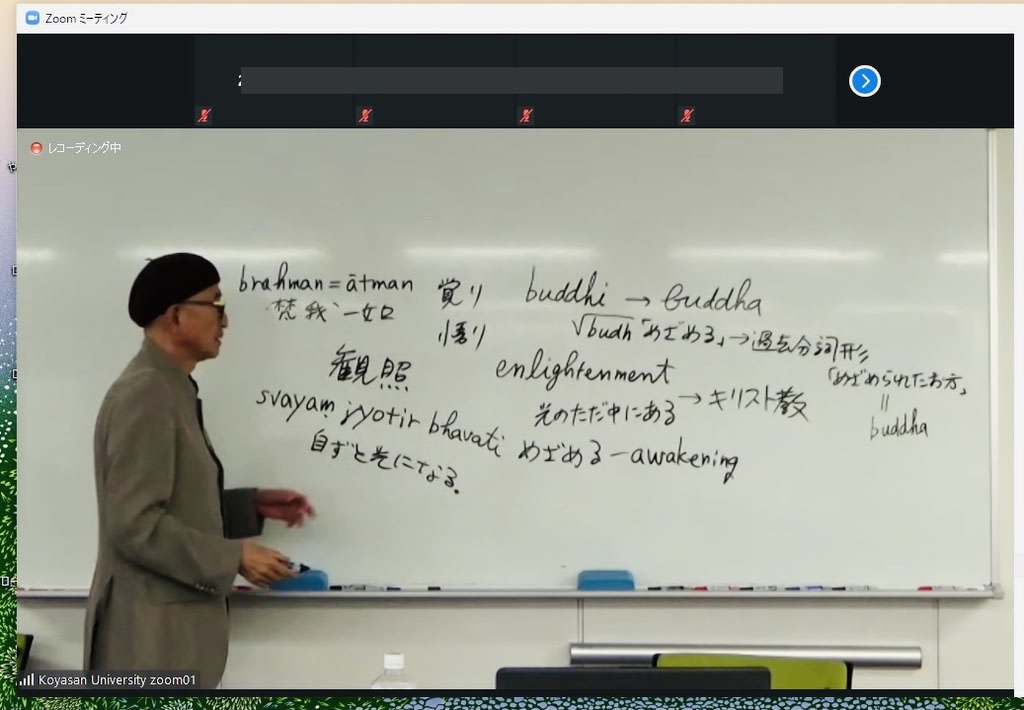 Zoom ミーティング
レコーディング中
brahman = ātman
梵我一如
観照
svayam jyotir bhavati
自ずと光になる。
覚り
悟り
buddhi → buddha
√budh「めざめる」→過去分詞形
「めざめられたお方」
||
buddha
enlightenment
光のただ中にある → キリスト教
めざめる — awakening
Koyasan University zoom01